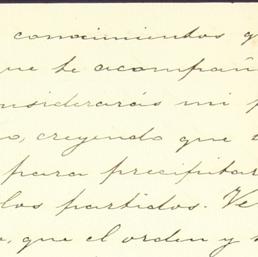 conocimientos q
ue te acompañ
nsiderarás mi p
o, creyendo que
para precipitar
los partidos. Ve
o, que el orden y